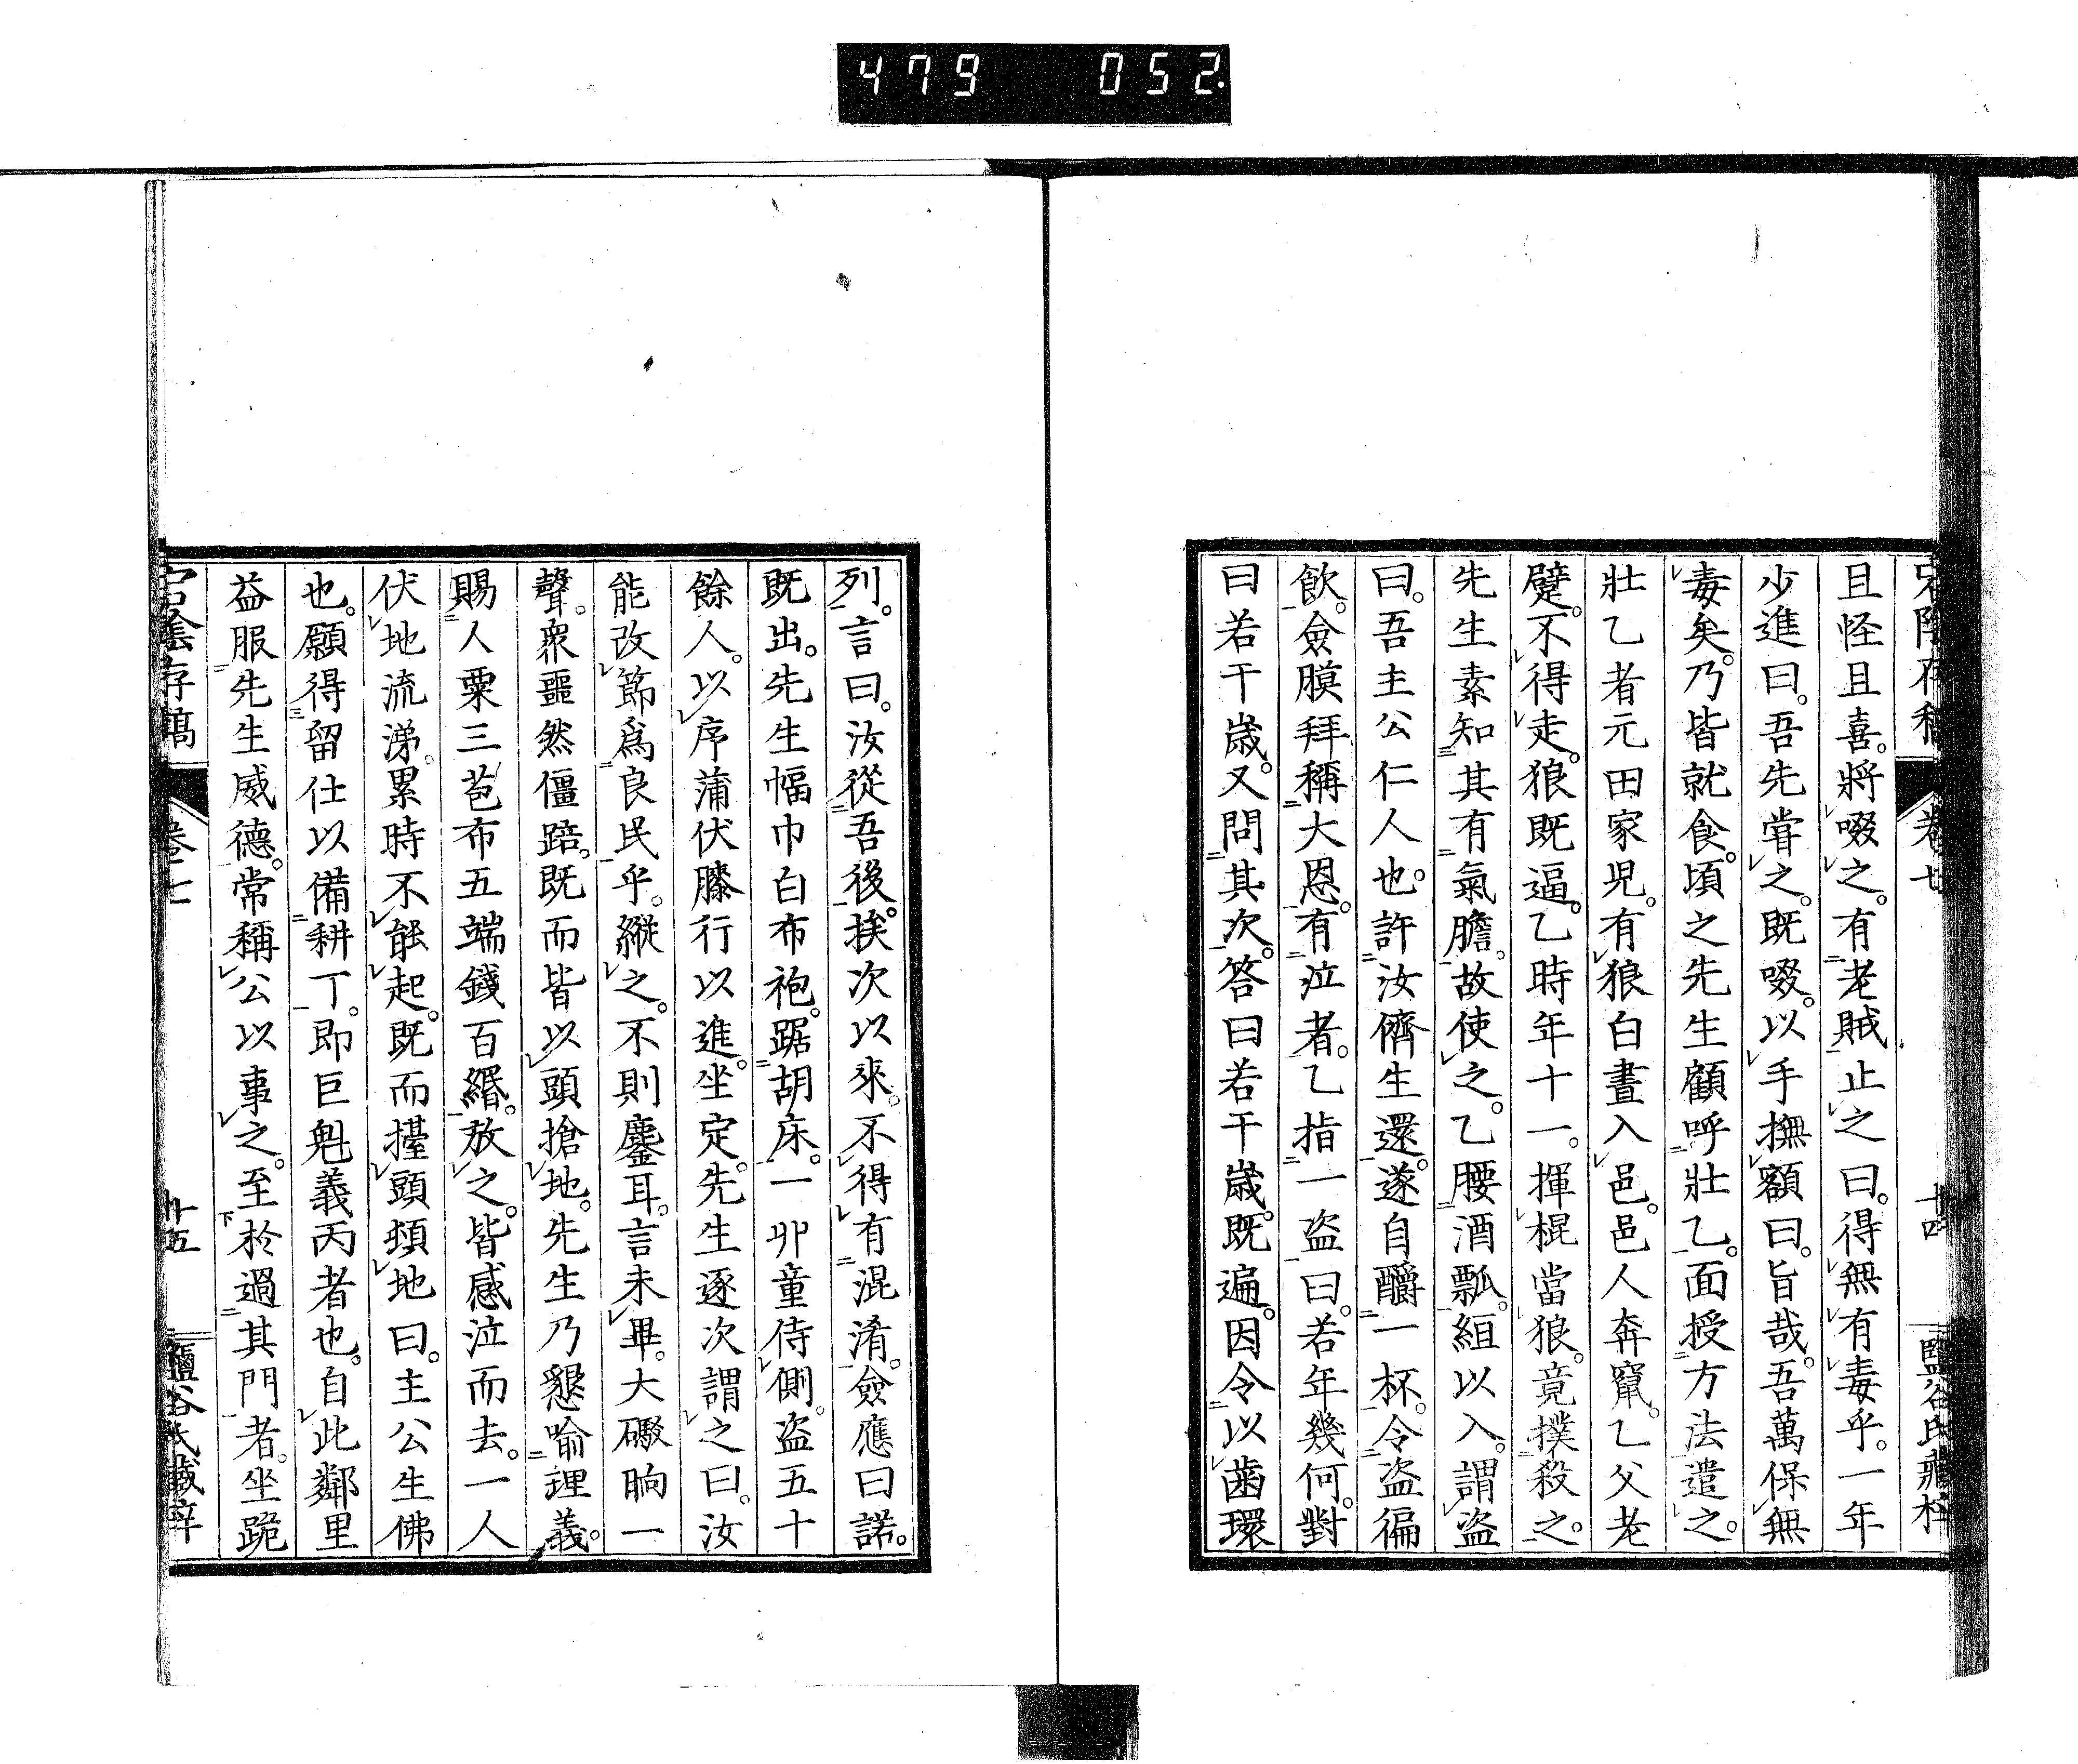 479 052.
宕陰存稿 卷七 十四 鹽谷氏藏梓
且怪且喜。將啜之。有老賊止之曰。得無有毒乎。一年
少進曰。吾先甞之。既啜。以手撫額曰。旨哉。吾萬保無
毒矣。乃皆就食。頃之先生顧呼壯乙。面授方法遣之。
壯乙者元田家児。有狼白晝入邑。邑人奔竄。乙父老
躄。不得走。狼既逼。乙時年十一。揮棍當狼。竟撲殺之。
先生素知其有氣膽。故使之。乙腰酒瓢。組以入。謂盗
曰。吾主公仁人也。許汝儕生還。遂自釂一杯。令盗徧
飲。僉膜拜稱大恩。有泣者。乙指一盗曰。若年幾何。對
曰若干歲。又問其次。答曰若干歲。既遍。因令以齒環
列。言曰。汝從吾後。挨次以來。不得有混淆。僉應曰諾。
既出。先生幅巾白布袍。踞胡床。一丱童侍側。盗五十
餘人。以序蒲伏膝行以進。坐定。先生逐次謂之曰。汝
能改節爲良民乎。縱之。不則鏖耳。言未畢。大礮晌一
聲。衆噩然僵踣。既而皆以頭搶地。先生乃懇喻理義。
賜人粟三苞布五端錢百緡。放之。皆感泣而去。一人
伏地流涕。累時不能起。既而擡頭頓地曰。主公生佛
也。願得留仕以備耕丁。即巨魁義丙者也。自此鄰里
益服先生威德。常稱公以事之。至於過其門者。坐跪
宕陰存稿 卷七 十五 鹽谷氏藏梓